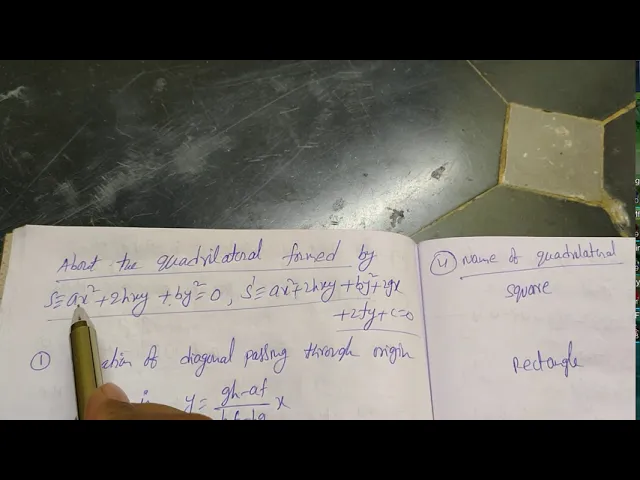 About the quadrilateral formed by
S≡ax²+2hxy+by²=0, S'≡ax²+2hxy+by²+2gx
+2fy+c=0
① ation of diagonal passing through origin
y = gh-af x
④ name of quadrilateral
square
Rectangle